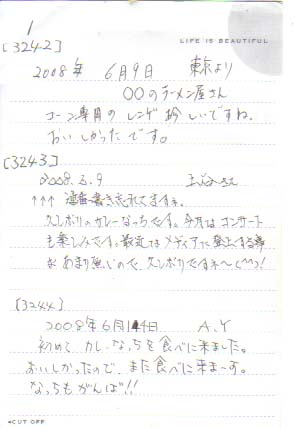 1
LIFE IS BEAUTIFUL
[3242]
2008年 6月9日 東京より
○○のラーメン屋さん
コーン専用のレンゲ珍しいですね。
おいしかったです。
[3243]
2008.6.9
↑↑↑ 書き忘れてますネ。
久しぶりのカレーなっちです。今月はコンサート
も楽しみです。最近はメディアに登上する事
があまり無いので、久しぶりですネ〜(^^)!
[3244]
2008年6月14日 A.Y
初めてカレーなっちを食べに来ました。
おいしかったので、また食べに来ま〜す。
なっちもがんば!!
◂CUT OFF